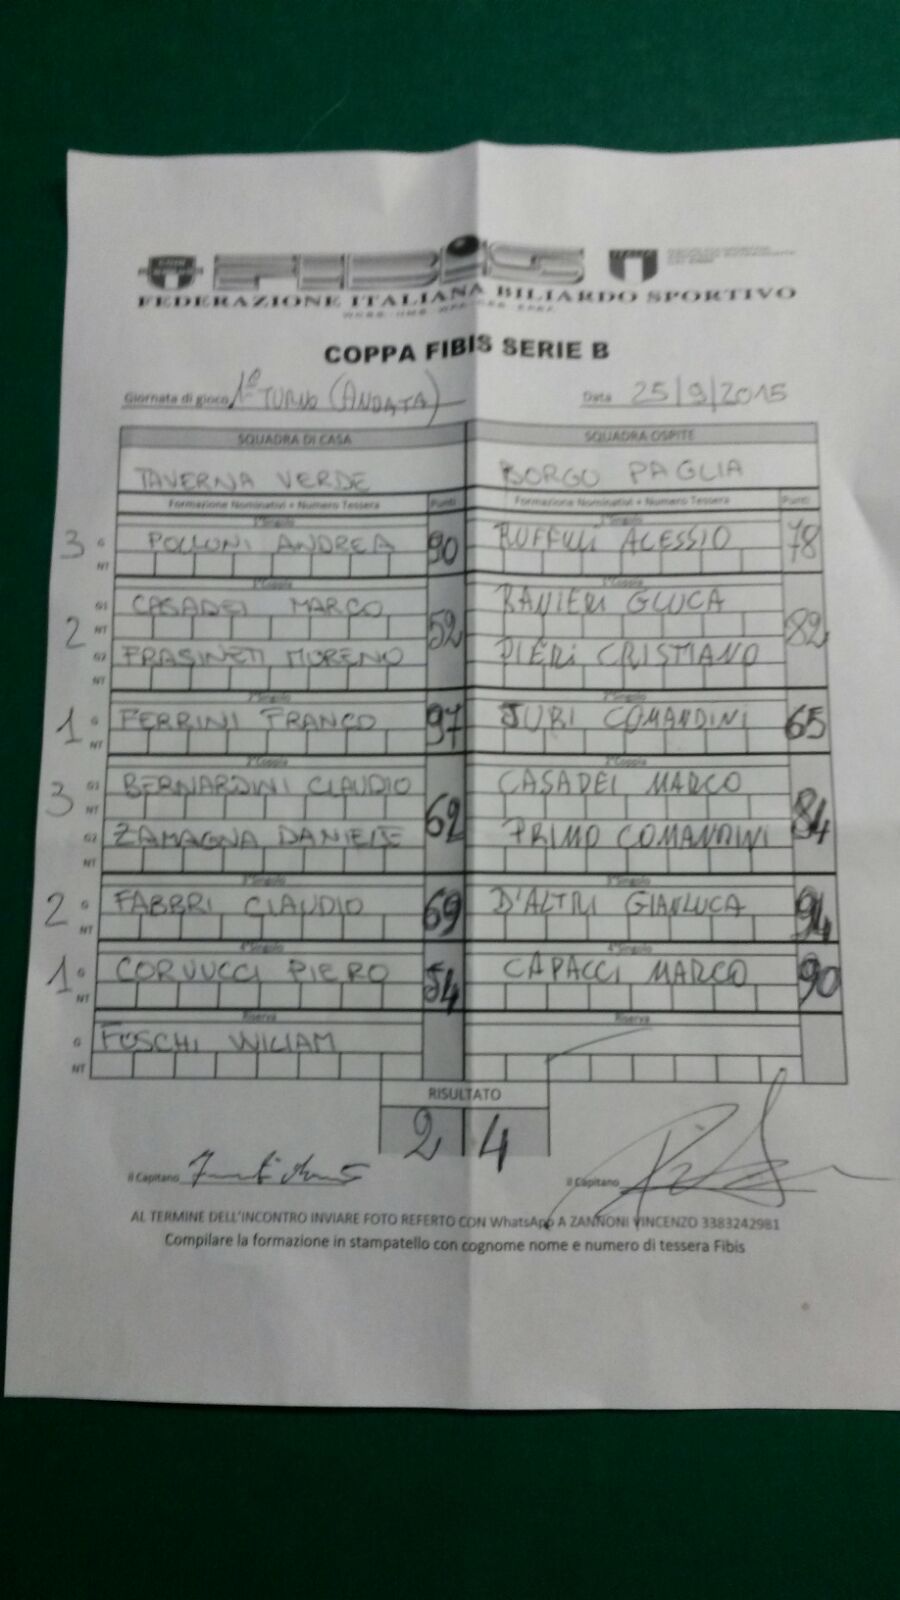 FEDERAZIONE ITALIANA BILIARDO SPORTIVO
COPPA FIBIS SERIE B
Giornata di gioco 1° TURNO (ANDATA) Data 25/9/2015
SQUADRA DI CASA SQUADRA OSPITE
TAVERNA VERDE BORGO PAGLIA
Formazione Nominativi + Numero Tessera Punti Formazione Nominativi + Numero Tessera Punti
1°Singolo 1°Singolo
3 G POLLONI ANDREA 90 RUFFULI ALESSIO 78
NT
1°Coppia 1°Coppia
G1 CASADEI MARCO RANIERI GLUCA
2 NT 52 82
G2 FRASINETI MORENO PIERI CRISTIANO
NT
2°Singolo 2°Singolo
1 G FERRINI FRANCO 97 JURI COMANDINI 65
NT
2°Coppia 2°Coppia
G1 BERNARDINI CLAUDIO CASADEI MARCO
3 NT 62 84
G2 ZAMAGNA DANIELE PRIMO COMANDINI
NT
3°Singolo 3°Singolo
2 G FABBRI CLAUDIO 69 D'ALTRI GIANLUCA 94
NT
4°Singolo 4°Singolo
1 G CORVUCCI PIERO 54 CAPACCI MARCO 90
NT
Riserva Riserva
G FOSCHI WILIAM
NT
RISULTATO
2 4
Il Capitano Il Capitano
AL TERMINE DELL'INCONTRO INVIARE FOTO REFERTO CON WhatsApp A ZANNONI VINCENZO 3383242981
Compilare la formazione in stampatello con cognome nome e numero di tessera Fibis